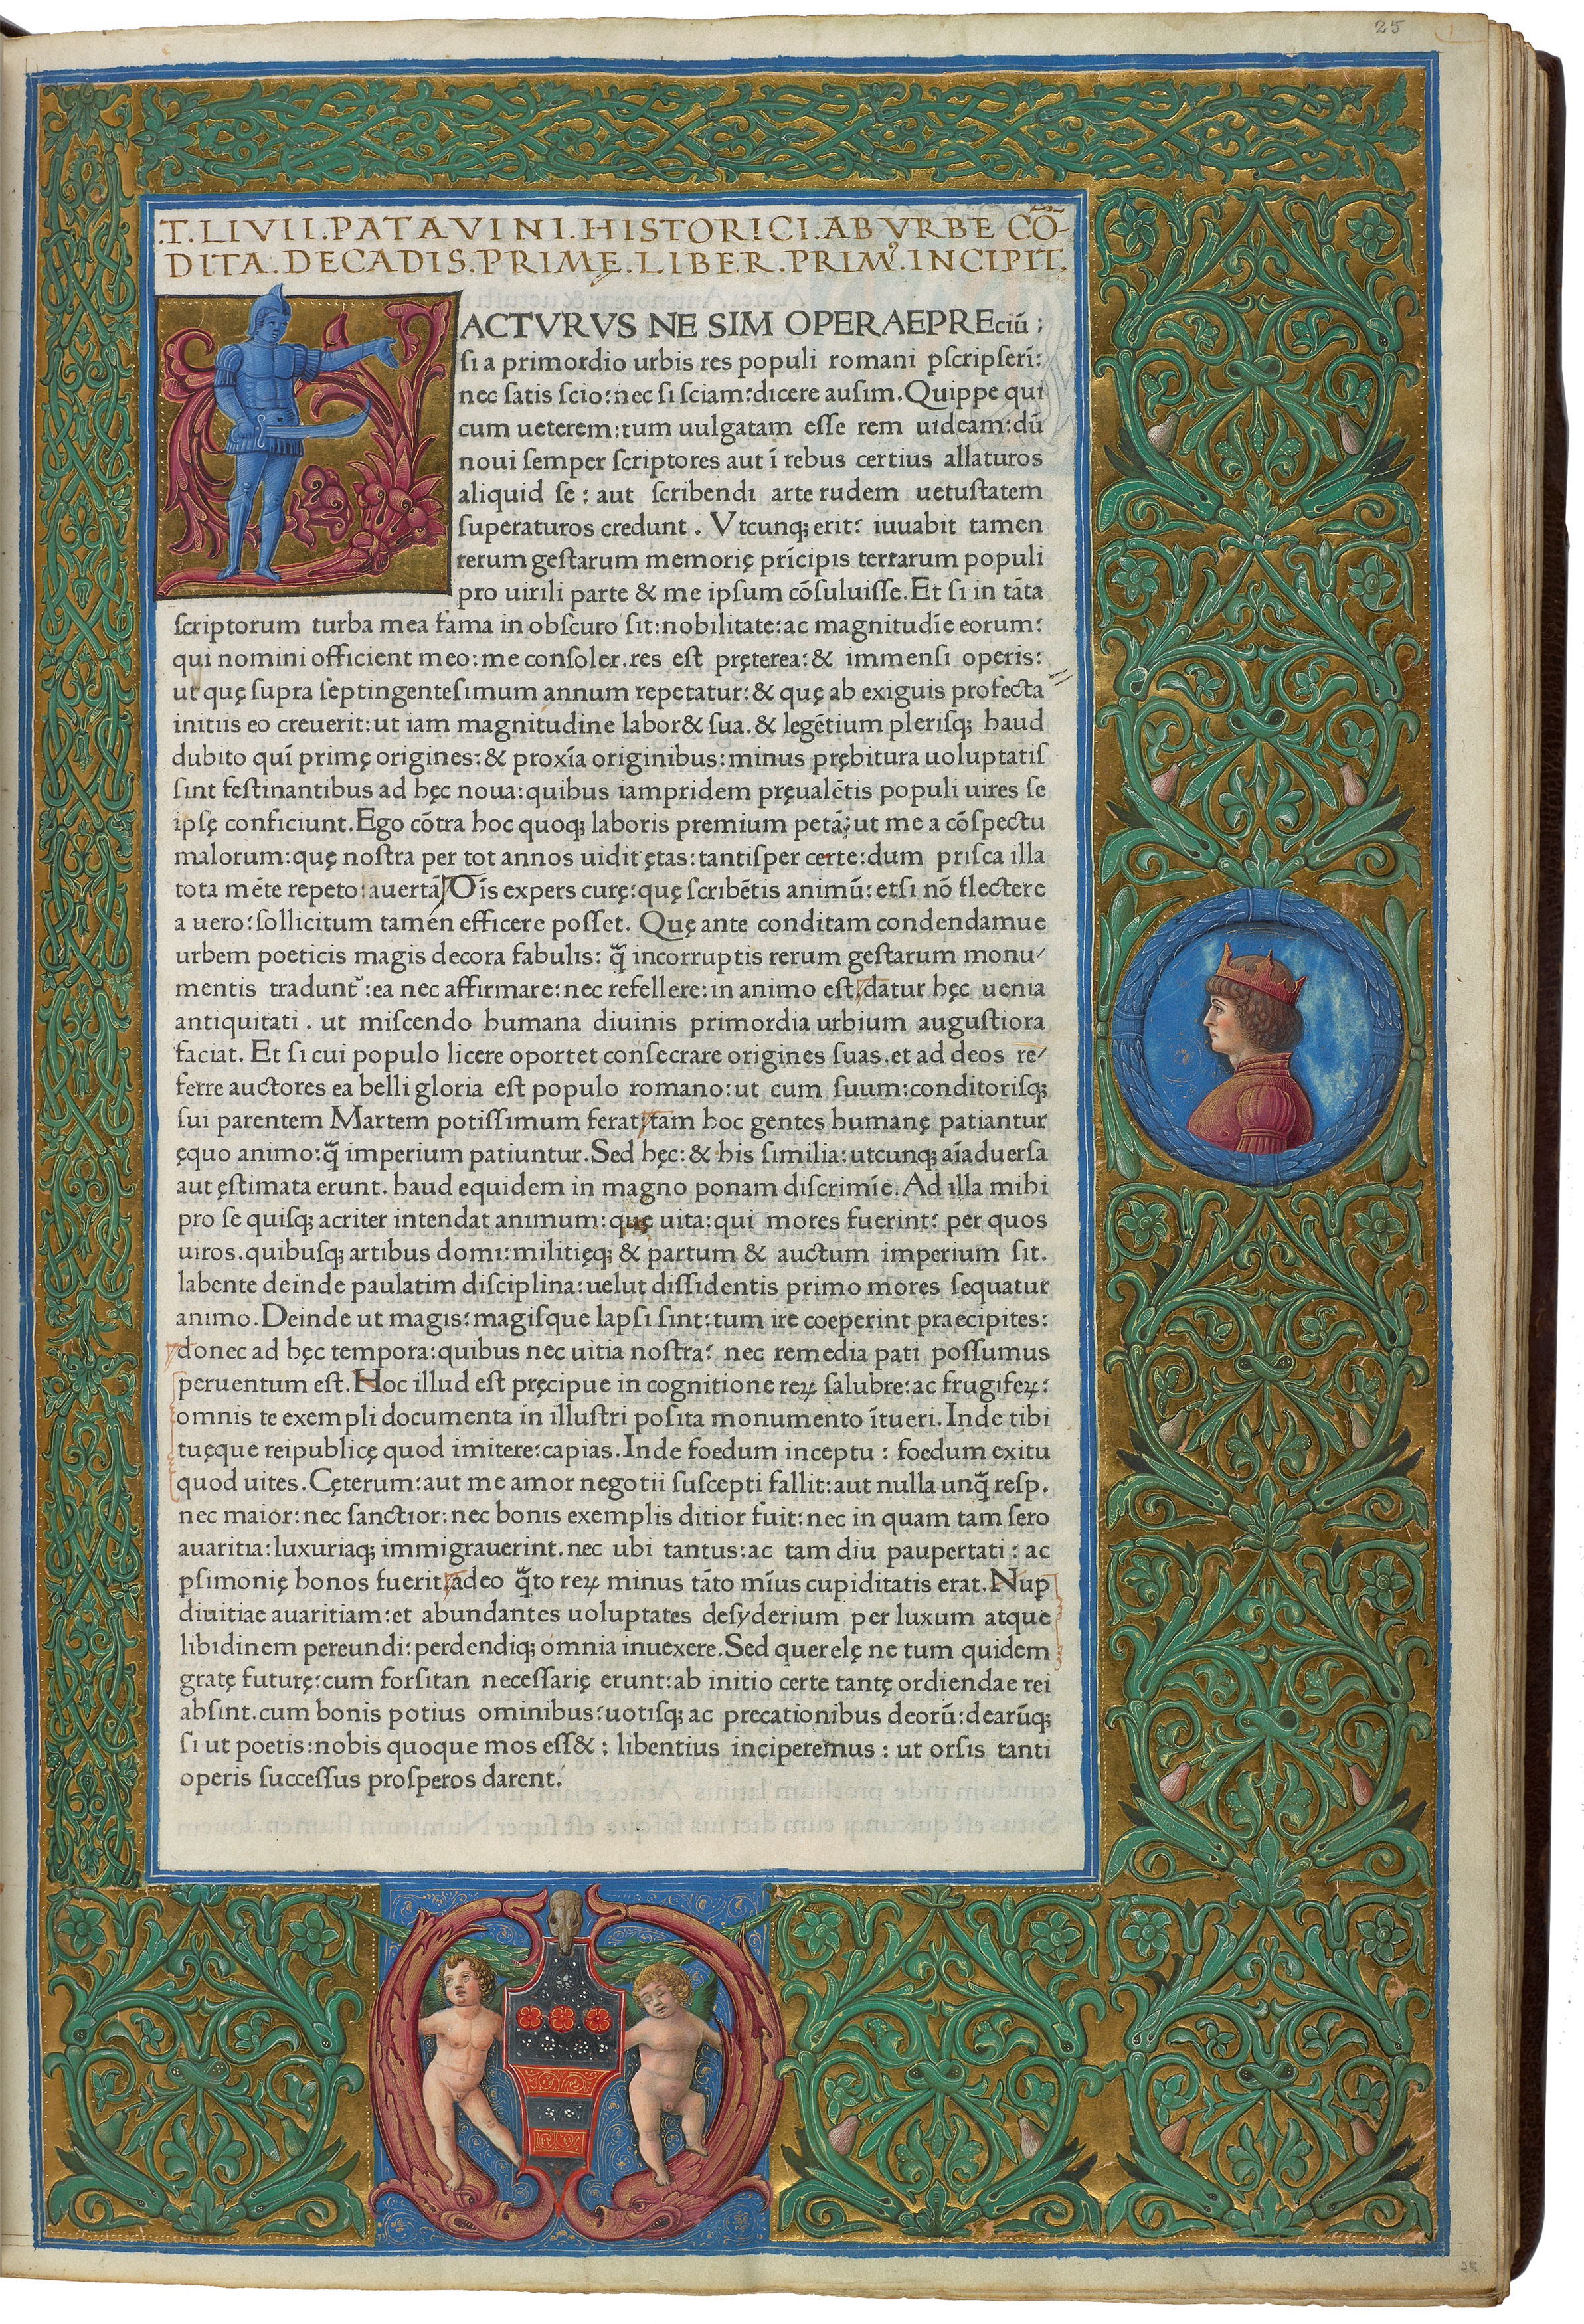 25
.T.LIVII.PATAVINI.HISTORICI.AB VRBE CŌ-
DITA.DECADIS.PRIMĘ.LIBER.PRIMꝰ.INCIPIT.
FACTVRVS NE SIM OPERAEPREciū;
ſi a primordio urbis res populi romani ꝑſcripſerī:
nec ſatis ſcio:nec ſi ſciam:dicere auſim.Quippe qui
cum ueterem:tum uulgatam eſſe rem uideam:dū
noui ſemper ſcriptores aut ī rebus certius allaturos
aliquid ſe: aut ſcribendi arte rudem uetuſtatem
ſuperaturos credunt. Vtcunqꝫ erit: iuuabit tamen
rerum geſtarum memorię prīcipis terrarum populi
pro uirili parte & me ipſum cōſuluiſſe.Et ſi in tāta
ſcriptorum turba mea fama in obſcuro ſit:nobilitate:ac magnitudīe eorum:
qui nomini officient meo:me conſoler.res eſt pręterea:& immenſi operis:
ut quę ſupra ſeptingenteſimum annum repetatur:& quę ab exiguis profecta
initiis eo creuerit:ut iam magnitudine labor& ſua.& legētium pleriſqꝫ haud
dubito quī primę origines:& proxīa originibus:minus prębitura uoluptatiſ
ſint feſtinantibus ad hęc noua:quibus iampridem pręualētis populi uires ſe
ipſę conficiunt.Ego cōtra hoc quoqꝫ laboris premium petā;ut me a cōſpectu
malorum:quę noſtra per tot annos uidit ętas:tantiſper certe:dum priſca illa
tota mēte repeto:auertā/Oīs expers curę:quę ſcribētis animū:etſi nō flectere
a uero:ſollicitum tamen efficere poſſet. Quę ante conditam condendamue
urbem poeticis magis decora fabulis: q̄ incorruptis rerum geſtarum monu/
mentis tradunt᷑:ea nec affirmare:nec refellere:in animo eſt:datur hęc uenia
antiquitati. ut miſcendo humana diuinis primordia urbium auguſtiora
faciat. Et ſi cui populo licere oportet conſecrare origines ſuas.et ad deos re/
ferre auctores ea belli gloria eſt populo romano:ut cum ſuum:conditoriſqꝫ
ſui parentem Martem potiſſimum ferat:tam hoc gentes humanę patiantur
ęquo animo:q̄ imperium patiuntur.Sed hęc:& his ſimilia:utcunqꝫ aīaduerſa
aut ęſtimata erunt. haud equidem in magno ponam diſcrimīe.Ad illa mihi
pro ſe quiſqꝫ acriter intendat animum:quę uita:qui mores fuerint: per quos
uiros.quibuſqꝫ artibus domi:militięqꝫ & partum & auctum imperium ſit.
labente deinde paulatim diſciplina:uelut diſſidentis primo mores ſequatur
animo.Deinde ut magis:magiſque lapſi ſint:tum ire coeperint praecipites:
donec ad hęc tempora:quibus nec uitia noſtra: nec remedia pati poſſumus
peruentum eſt.Hoc illud eſt pręcipue in cognitione reꝝ ſalubre:ac frugifeꝝ:
omnis te exempli documenta in illuſtri poſita monumento ītueri.Inde tibi
tuęque reipublicę quod imitere:capias.Inde foedum inceptu: foedum exitu
quod uites.Cęterum:aut me amor negotii ſuſcepti fallit:aut nulla unq̄ reſp.
nec maior:nec ſanctior:nec bonis exemplis ditior fuit:nec in quam tam ſero
auaritia:luxuriaqꝫ immigrauerint.nec ubi tantus:ac tam diu paupertati: ac
ꝑſimonię honos fuerit:adeo q̄to reꝝ minus tāto mīus cupiditatis erat.Nuꝑ
diuitiae auaritiam:et abundantes uoluptates deſyderium per luxum atque
libidinem pereundi:perdendiqꝫ omnia inuexere.Sed querelę ne tum quidem
gratę futurę:cum forſitan neceſſarię erunt:ab initio certe tantę ordiendae rei
abſint.cum bonis potius ominibus:uotiſqꝫ ac precationibus deorū:dearūqꝫ
ſi ut poetis:nobis quoque mos eſſ&: libentius inciperemus: ut orſis tanti
operis ſucceſſus proſperos darent.